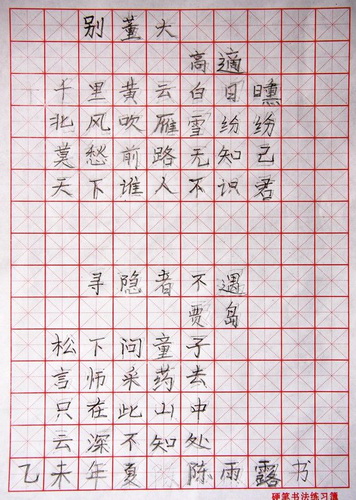 别董大
高適
千里黄云白日曛
北风吹雁雪纷纷
莫愁前路无知己
天下谁人不识君
寻隐者不遇
贾岛
松下问童子
言师采药去
只在此山中
云深不知处
乙未年夏 陈雨露书
硬笔书法练习簿